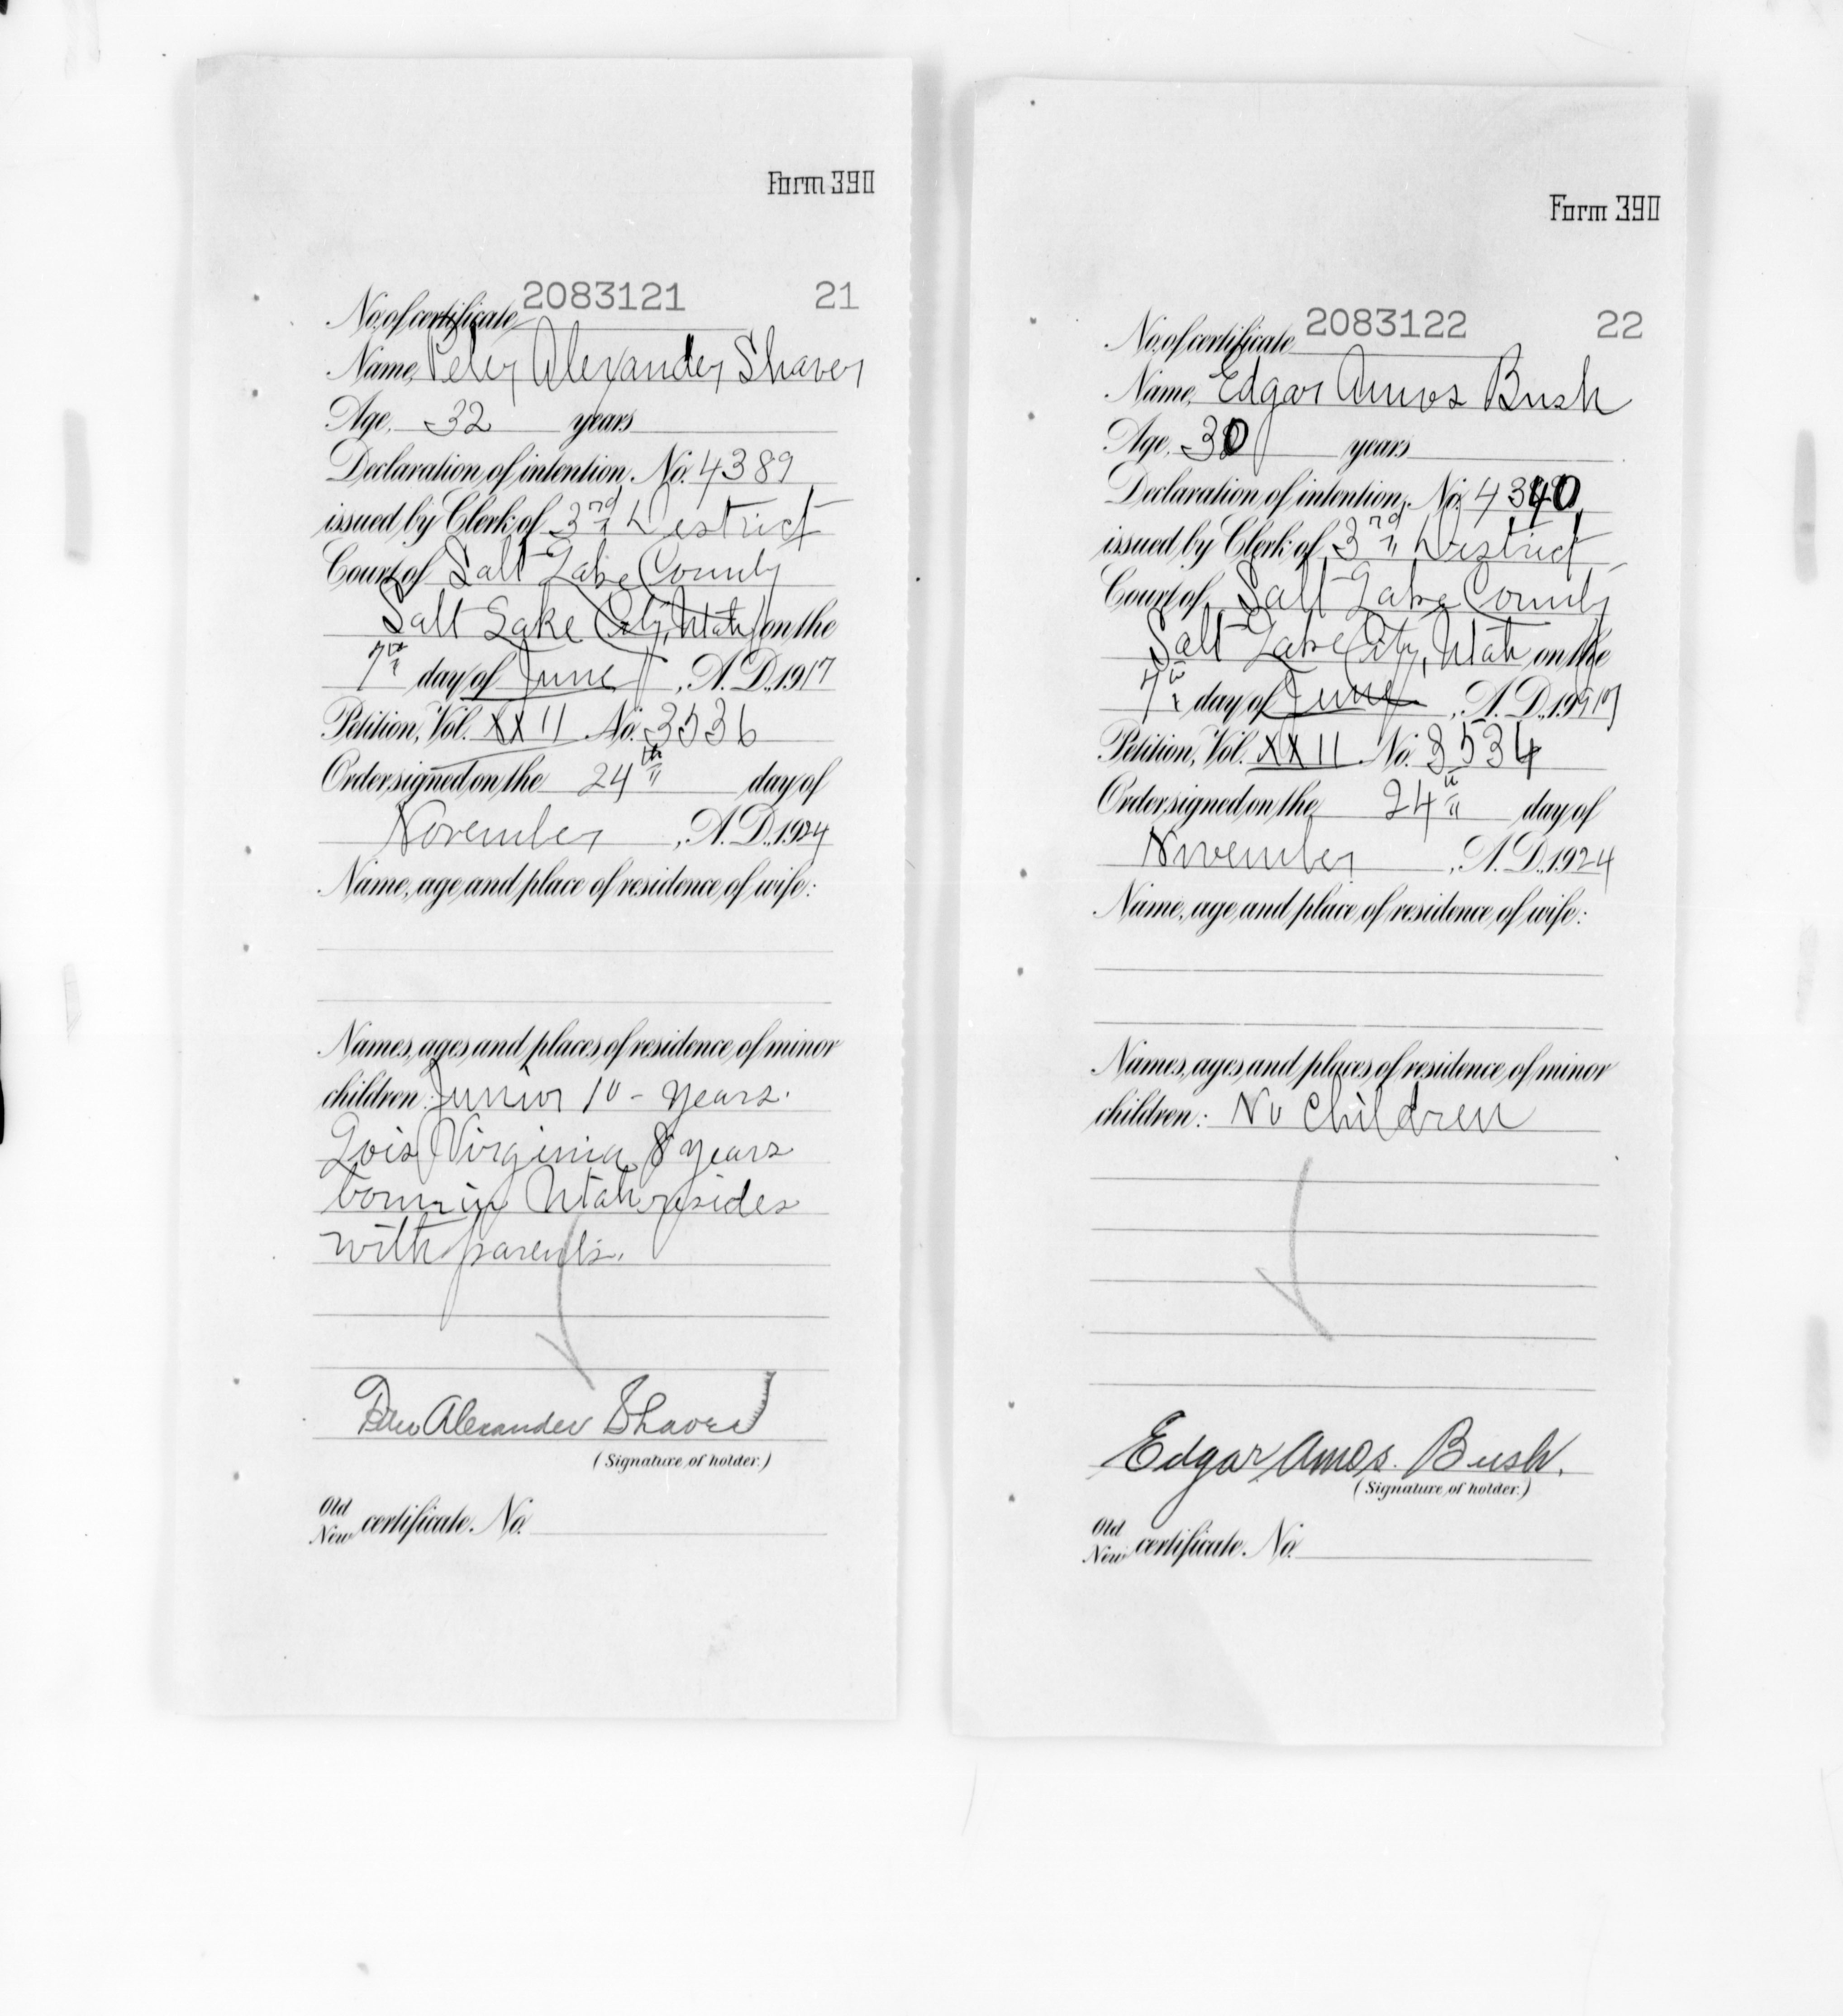 Form 390
No. of certificate 2083121 21
Name, Peter Alexander Shaver
Age, 32 years
Declaration of intention, No. 4389
issued by Clerk of 3rd District
Court of Salt Lake County
Salt Lake City, Utah on the
7th day of June, A.D. 1917
Petition, Vol. XXII No. 3536
Order signed on the 24th day of
November, A.D. 1924
Name, age, and place of residence of wife:
Names, ages and places of residence of minor
children: Junior 10 - years.
Lois Virginia 8 years
born in Utah resides
with parents.
Peter Alexander Shaver
(Signature of holder.)
Old
New certificate. No.
Form 390
No. of certificate 2083122 22
Name, Edgar Amos Bush
Age, 30 years
Declaration of intention, No.
issued by Clerk of 3rd District
Court of, Salt Lake County
Salt Lake City, Utah on the
7th day of June, A.D.
Petition, Vol. XXII No. 3534
Order signed on the 24th day of
November, A.D. 1924
Name, age, and place of residence of wife:
Names, ages and places of residence of minor
children: No Children
Edgar Amos. Bush.
(Signature of holder.)
Old
New certificate. No.